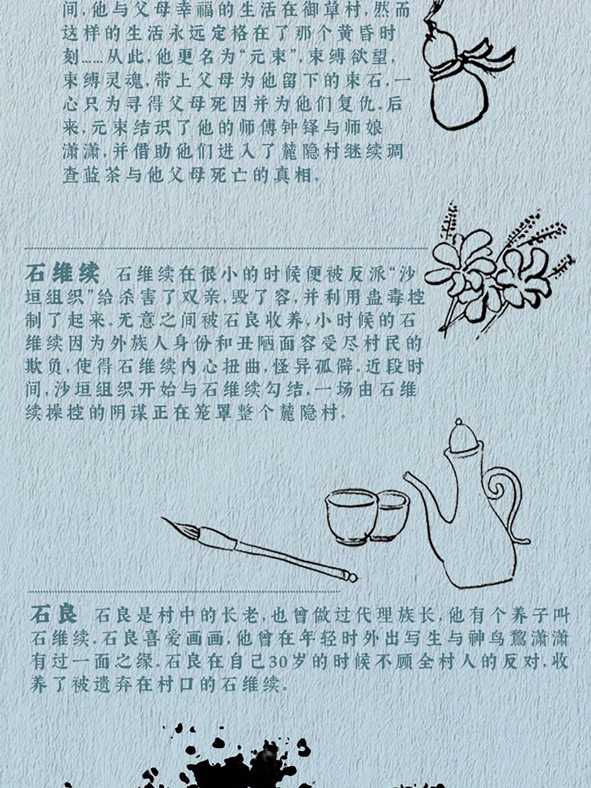 间,他与父母幸福的生活在御草村,然而
这样的生活永远定格在了那个黄昏时
刻……从此,他更名为“元束”,束缚欲望,
束缚灵魂,带上父母为他留下的束石,一
心只为寻得父母死因并为他们复仇.后
来,元束结识了他的师傅钟铎与师娘
潇潇,并借助他们进入了麓隐村继续调
查蓝茶与他父母死亡的真相.
石维续 石维续在很小的时候便被反派“沙
垣组织”给杀害了双亲,毁了容,并利用蛊毒控
制了起来.无意之间被石良收养,小时候的石
维续因为外族人身份和丑陋面容受尽村民的
欺负,使得石维续内心扭曲,怪异孤僻.近段时
间,沙垣组织开始与石维续勾结,一场由石维
续操控的阴谋正在笼罩整个麓隐村.
石良 石良是村中的长老,也曾做过代理族长,他有个养子叫
石维续.石良喜爱画画,他曾在年轻时外出写生与神鸟鹜潇潇
有过一面之缘.石良在自己30岁的时候不顾全村人的反对,收
养了被遗弃在村口的石维续.